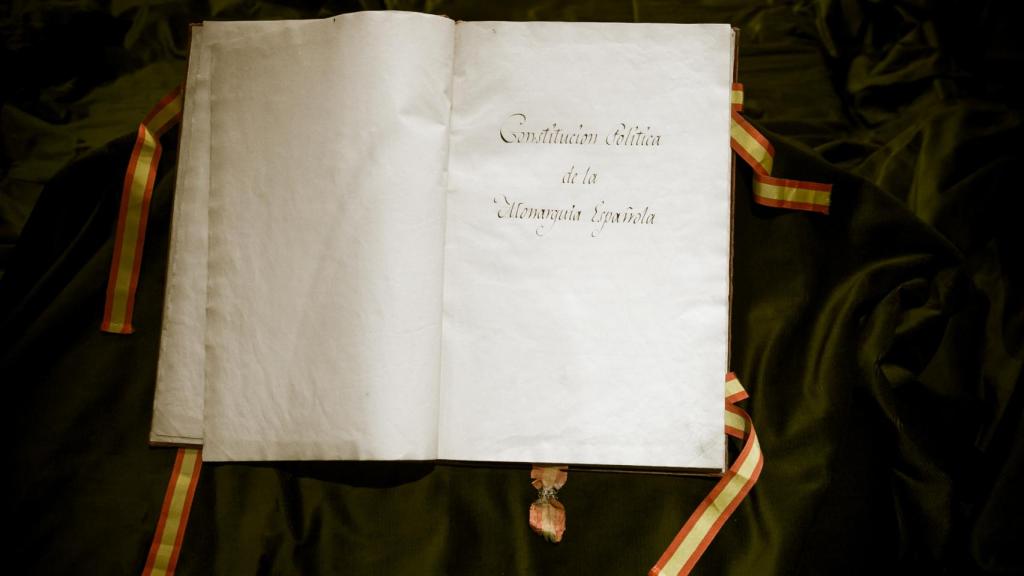 Constitucion Politica
de la
Monarquia Española